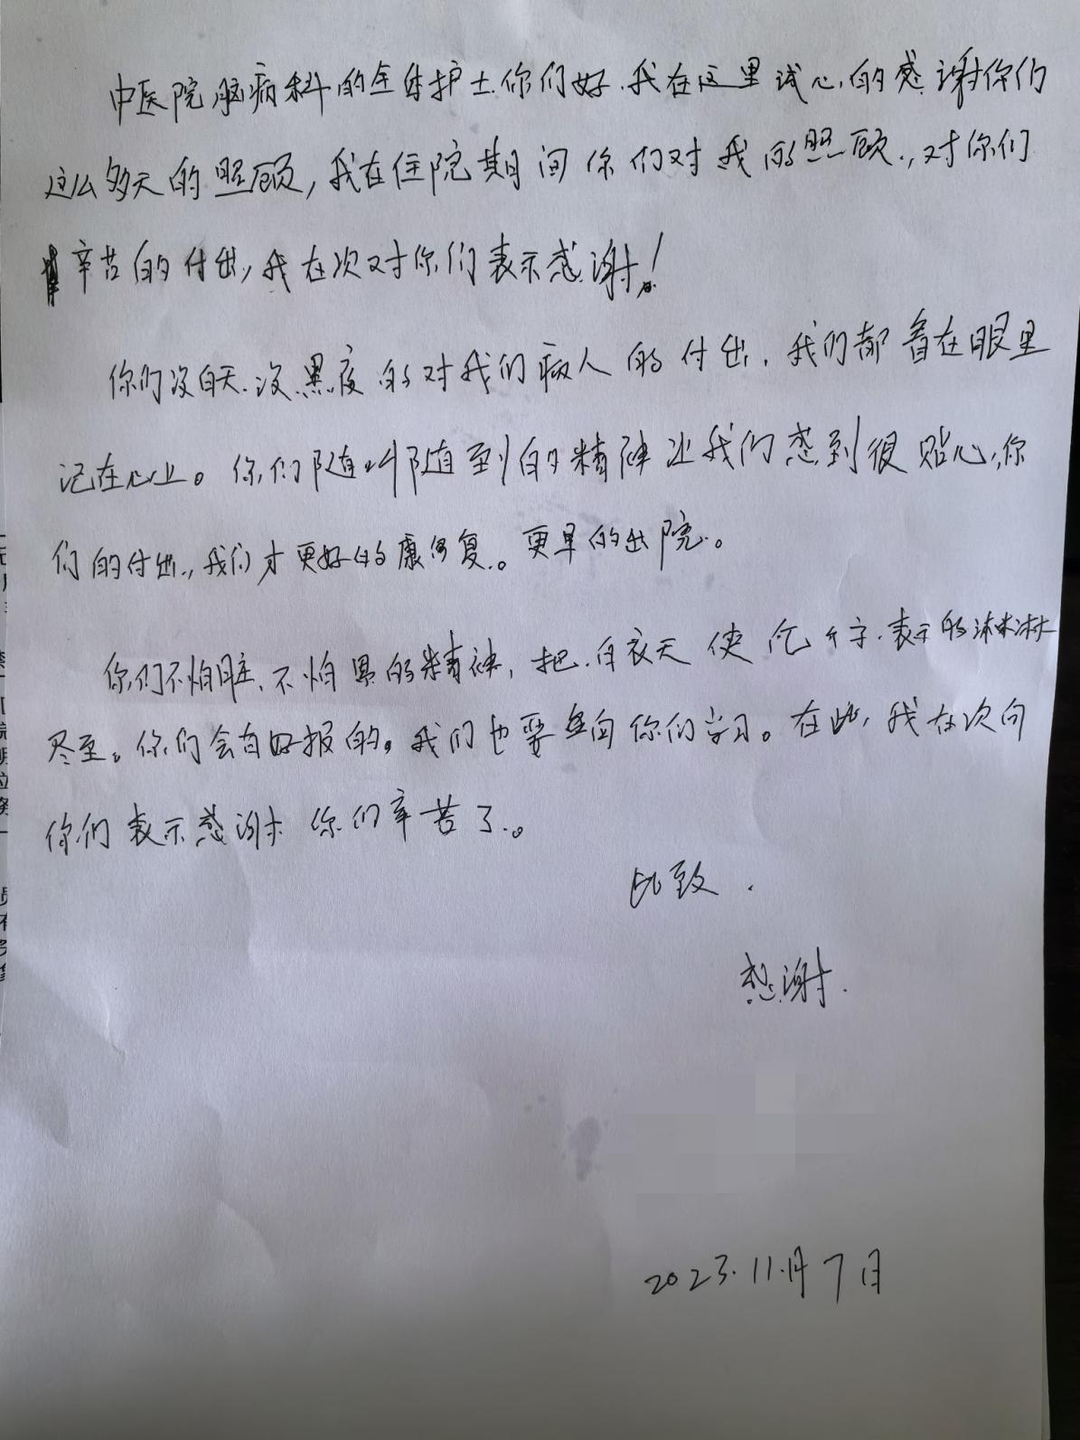 中医院脑病科的全体护士你们好.我在这里诚心的感谢你们
这么多天的照顾,我在住院期间你们对我的照顾.,对你们
辛苦的付出,我在次对你们表示感谢!
你们没白天.没黑夜的对我们病人的付出.我们都看在眼里
记在心上。你们随叫随到的精神让我们感到很贴心,你
们的付出.,我们才更好的康复.。更早的出院.。
你们不怕脏.不怕累的精神,把.白衣天使.表示的淋淋
尽至。你们会有好报的。我们也要向你们学习。在此,我在次向
你们表示感谢 你们辛苦了.。
此致.
感谢.
2023.11.月7日